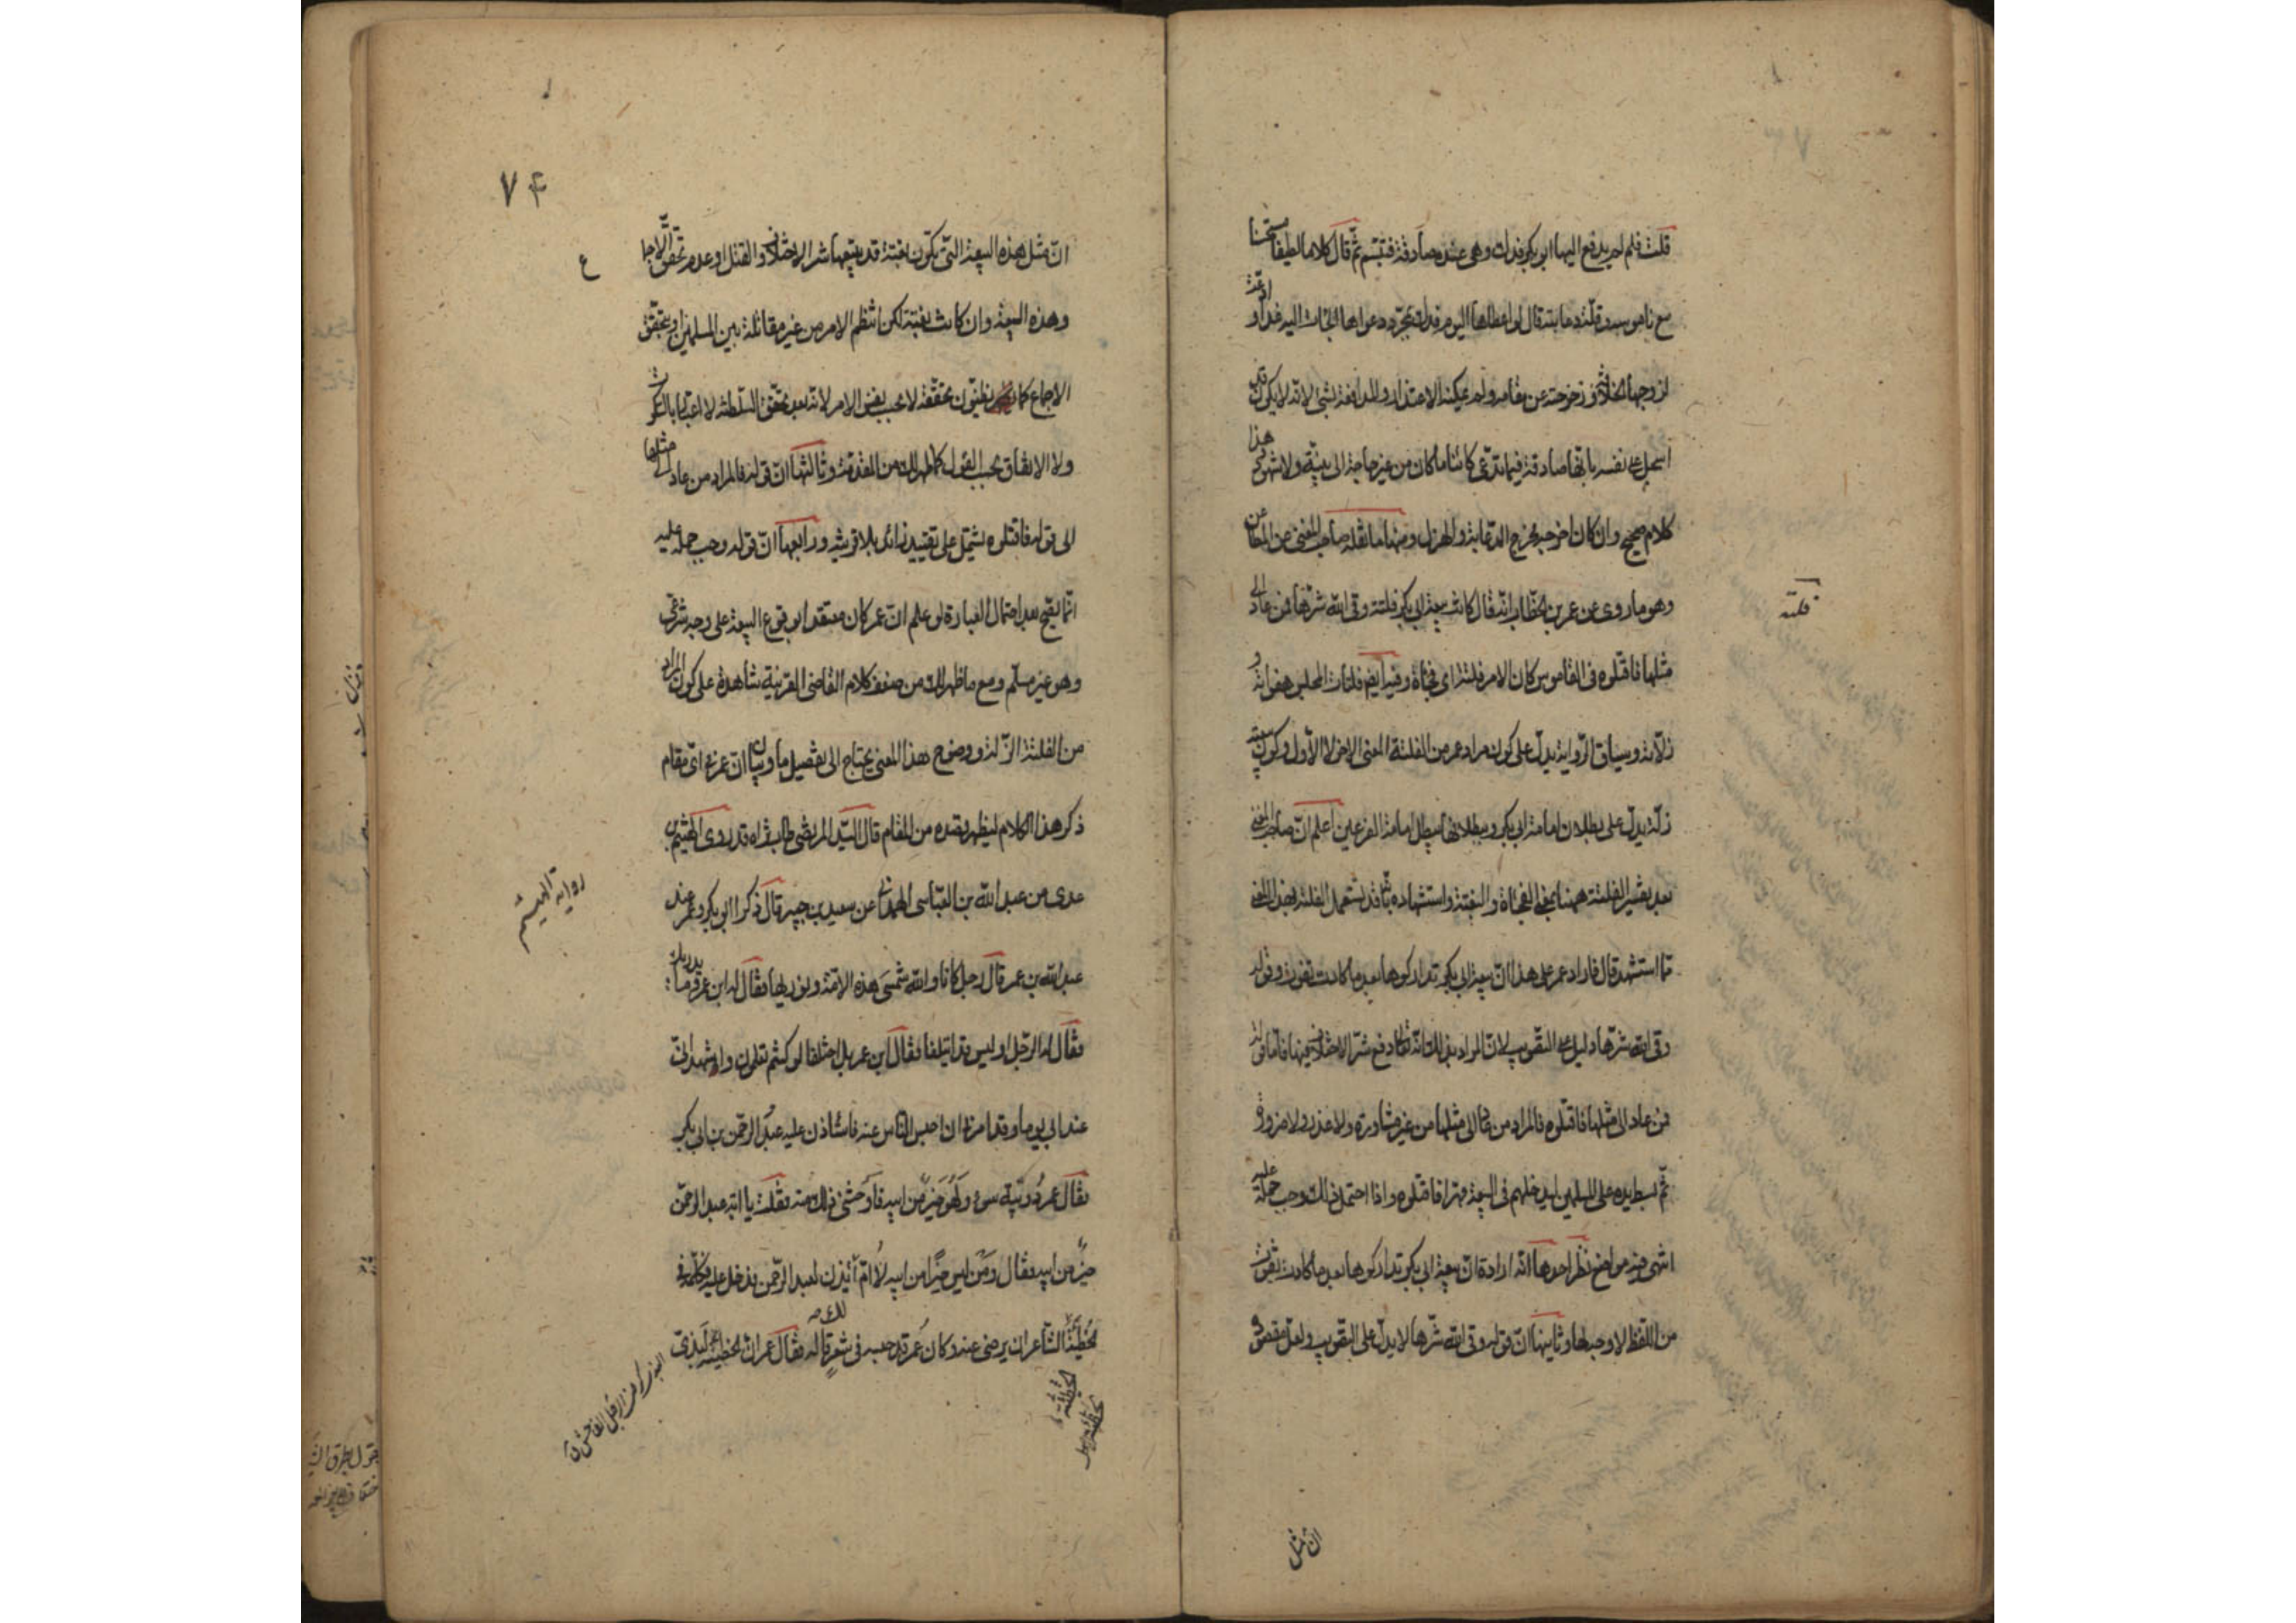 قلت فلم لم يدفع اليها ابو بكر فدك وهى عنده صادقة فتبسم ثم قال كلاما لطيفا مستحسنا
مع ناموسه وقلة دعابته قال لو اعطاها اليوم فدك بمجرد دعواها لجاءت اليه غدا و ادعت
لزوجها الخلافة وزحزحته عن مقامه ولم يمكنه الاعتذار والمدافعة بشئ لانه لا يكون قد
اسجل على نفسه بانها صادقة فيما تدعى كائنا ما كان من غير حاجة الى بينة ولا شهود هذا
كلام صحيح وان كان اخرجه مخرج الدعابة والهزل ومنها ما نقله صاحب المغنى من المطاعن
وهو ما روى عن عمر بن الخطاب انه قال كانت بيعة ابى بكر فلتة وقى الله شرها فمن عاد الى
مثلها فاقتلوه فى القاموس كان الامر فلتة اى فجأة وفيه ايضا فلتات المجلس هفواته و
زلاته وسياق الرواية يدل على كون مراد عمر من الفلتة المعنى الاخر لا الأول وكون بيعته
زلة يدل على بطلان امامة ابى بكر وببطلانها يبطل امامة الفرعين اعلم ان صاحب المغنى
بعد تفسير الفلتة ههنا بمعنى الفجأة والبغتة واستشهاده بانه قد تستعمل الفلتة بهذا المعنى
بما استشهد قال فاراد عمر على هذا ان بيعة ابى بكر تداركوها بعد ما كادت تفوت وقوله
وقى الله شرها دليل على التصويب لان المراد بذلك انه تعالى دفع شر الاختلاف فيها فاما قوله
فمن عاد الى مثلها فاقتلوه فالمراد من عاد الى مثلها من غير مشاورة ولا عذر ولا ضرورة
ثم بسط يده على المسلمين ليدخلهم فى البيعة قهرا فاقتلوه واذا احتمل ذلك وجب حمله عليه
انتهى وفيه مواضع نظر احدها انه ارادة ان بيعة ابى بكر تداركوها بعد ما كادت تفوت
من اللفظ لا وجه لها وثانيها ان قوله وقى الله شرها لا يدل على التصويب ولعل مقصوده
فلتة
ان مثل
٧٤
ان مثل هذه البيعة التى تكون بغتة قد يتبعها شر الاختلاف والقتل او عدم تحقق الاجماع
وهذه البيعة وان كانت بغتة لكن انتظم الامر من غير مقاتلة بين المسلمين او بتحقق
الاجماع كما يظنون تحققه لا بحسب نفس الامر لانه بعد تحقق السلطنة لا اعتبار بالسكوت
ولا الاتفاق بحسب القول كما ظهر لك من المقدمة وثالثها ان قوله فالمراد من عاد الى مثلها
الى قوله فاقتلوه يشتمل على تقييد زائد بلا قرينة ورابعها ان قوله وجب حمله عليه
انما يصح بعد احتمال العبارة لو علم ان عمر كان معتقدا بوقوع البيعة على وجه شرعى
وهو غير مسلم ومع ما ظهر لك من ضعف كلام القاضى القرينة شاهدة على كون المراد
من الفلتة الزلة ووضوح هذا المعنى يحتاج الى تفصيل ما وبيان ان عمر فى اى مقام
ذكر هذا الكلام ليظهر قصده من المقام قال السيد المرتضى طاب ثراه قد روى الهيثم بن
عدى عن عبد الله بن العباس الهمدانى عن سعيد بن جبير قال ذكر ابو بكر وعمر عند
عبد الله بن عمر قال رجل كانا والله شمسى هذه الامة ونوريها فقال له ابن عمر وما يدريك
فقال له الرجل اوليس قد ائتلفا فقال ابن عمر بل اختلفا لو كنتم تعلمون واشهد انى
عند ابى يوما وقد امرنى ان احبس الناس عنه فاستأذن عليه عبد الرحمن بن ابى بكر
فقال عمر دويبة سوء ولهو خير من ابيه فاوحشنى ذلك منه فقلت يا ابه عبد الرحمن
خير من ابيه فقال ومن ليس خيرا من ابيه لا ام لك ائذن لعبد الرحمن فدخل عليه فكلمه فى
الحطيئة الشاعر ان يرضى عنه وكان عمر قد حبسه فى شعر قاله فقال عمر ان الحطيئة لبذى
رواية الهيثم